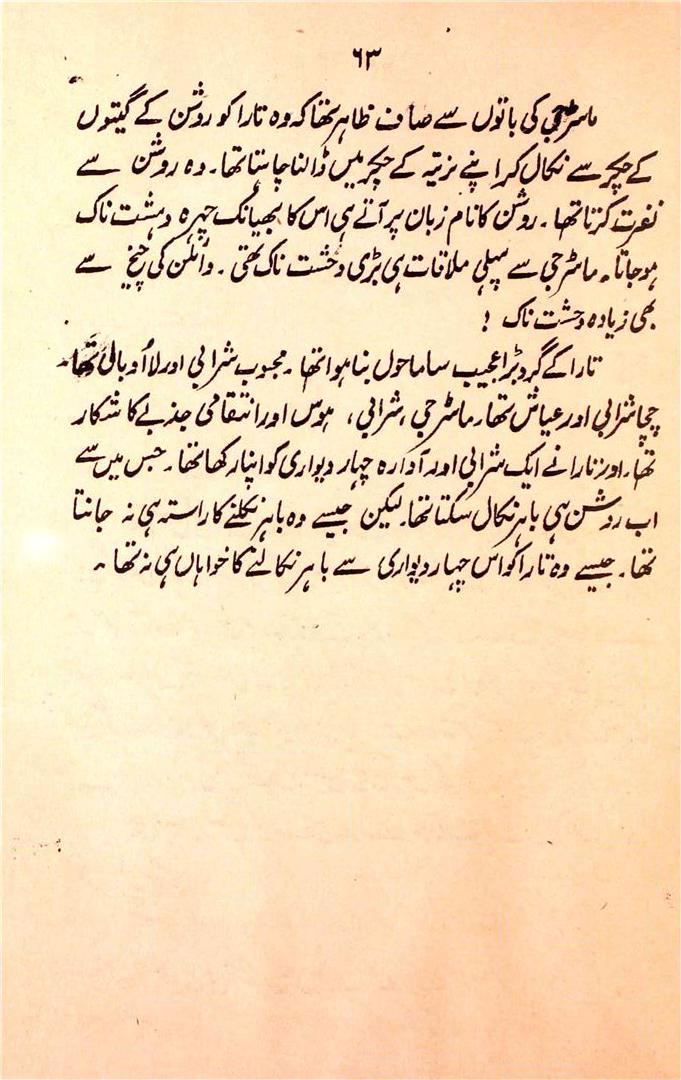 ۶۳
ماسٹرجی کی باتوں سے صاف ظاہر تھا کہ وہ تارا کو روشن کے گیتوں
کے چکر سے نکال کر اپنے نرتیہ کے چکر میں ڈالنا چاہتا تھا۔ وہ روشن سے
نفرت کرتا تھا۔ روشن کا نام زبان پر آتے ہی اس کا بھیانک چہرہ دہشت ناک
ہو جاتا۔ ماسٹرجی سے پہلی ملاقات ہی بڑی وحشت ناک تھی۔ وائلن کی چیخ سے
بھی زیادہ وحشت ناک !
تارا کے گرد بڑا عجیب سا ماحول بنا ہوا تھا۔ محبوب شرابی اور لااُوبالی تھا۔
چچا شرابی اور عیاش تھا۔ ماسٹرجی، شرابی، ہوس اور انتقامی جذبے کا شکار
تھا۔ اور تارا نے ایک شرابی اور آوارہ چہار دیواری کو اپنا رکھا تھا۔ جس میں سے
اب روشن ہی باہر نکال سکتا تھا۔ لیکن جیسے وہ باہر نکلنے کا راستہ ہی نہ جانتا
تھا۔ جیسے وہ تارا کو اس چہار دیواری سے باہر نکالنے کا خواہاں ہی نہ تھا۔